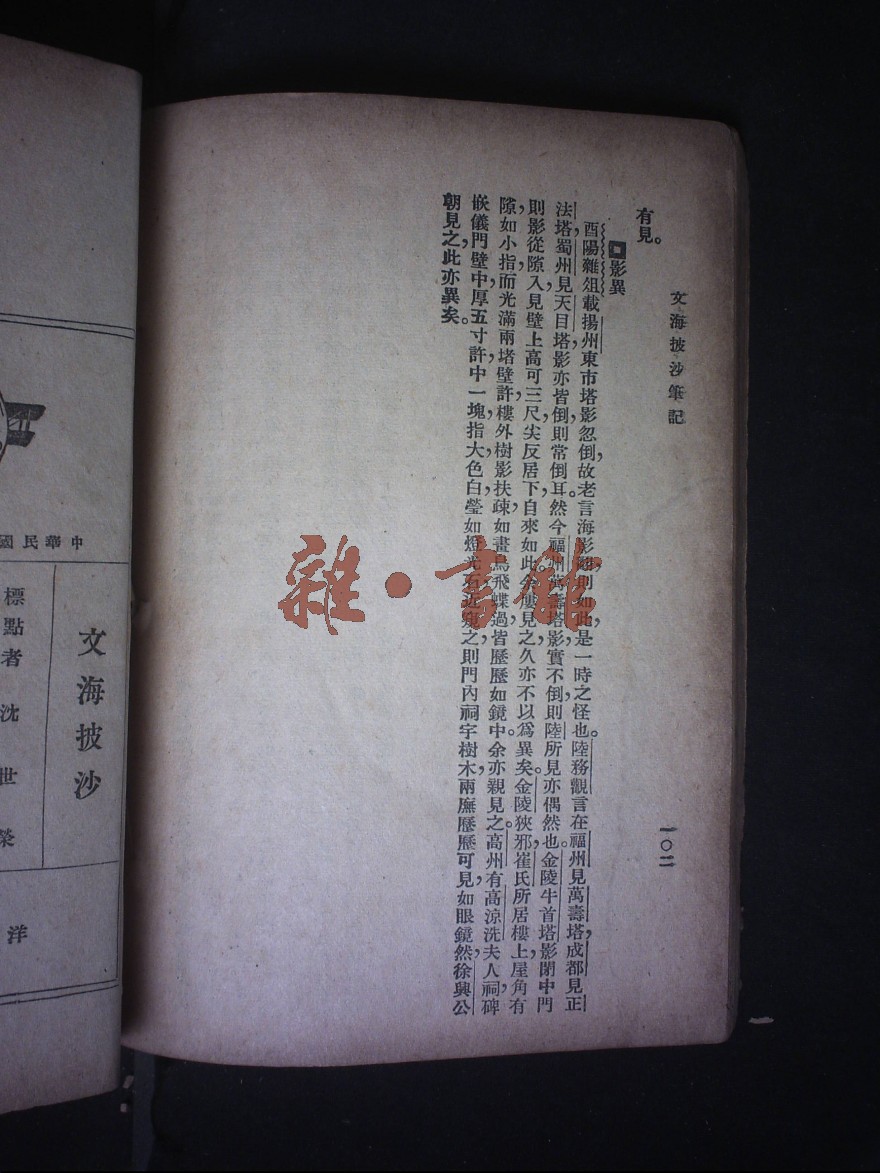 文海披沙筆記
一〇二
有見。
影異
酉陽雜俎載揚州東市塔影忽倒,故老言海影翻則如此,是一時之怪也。陸務觀言在福州見萬壽塔,成都見正
法塔,蜀州見天目塔,影亦皆倒,則常倒耳。然今福州萬壽塔影實不倒,則陸所見亦偶然也。金陵牛首塔影,閉中門
則影從隙入,見壁上高可三尺,尖反居下,自來如此。余屢見之,久亦不以爲異矣。金陵狹邪崔氏所居樓上,屋角有
隙如小指,而光滿兩堵壁許,樓外樹影扶疎如畫,鳥飛蝶過,皆歷歷如鏡中。余亦親見之。高州有高涼洗夫人祠,碑
嵌儀門壁中,厚五寸許,中一塊指大,色白瑩如燈光石,近窺之,則門內祠宇樹木,兩廡歷歷可見,如眼鏡然,徐興公
朝見之,此亦異矣。
雜·書館
中華民國
文海披沙
標點者 沈世榮
洋